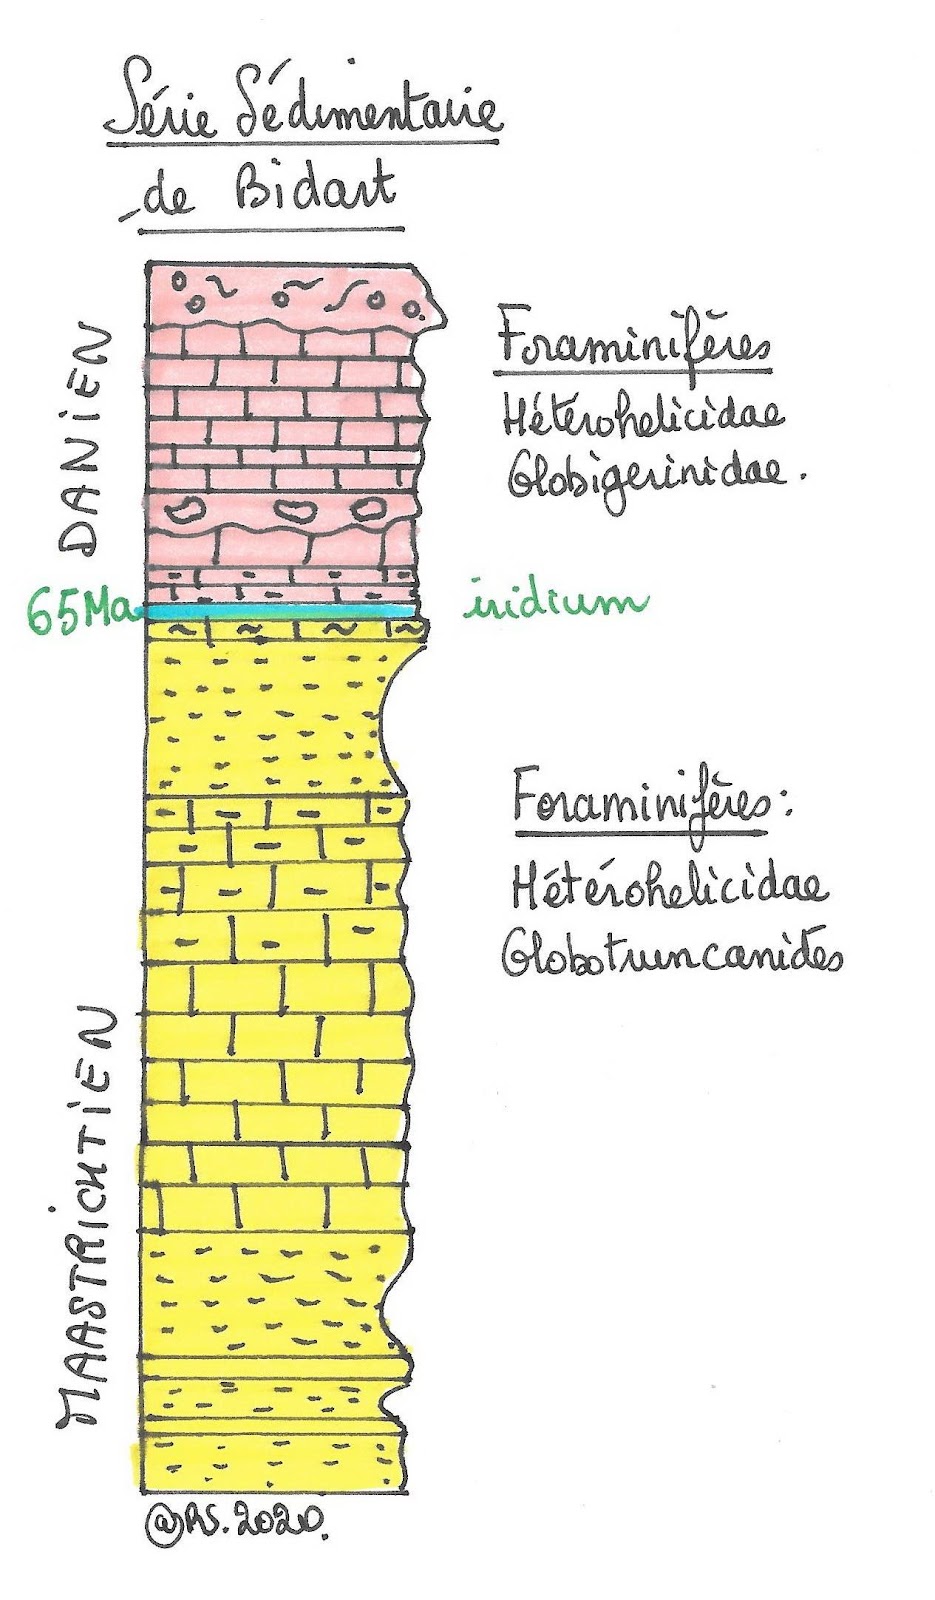 Série Sédimentaire
de Bidart
DANIEN
Foraminifères
Hétérohelicidae
Globigerinidae.
65Ma
iridium
Foraminifères:
Hétérohelicidae
Globotruncanidés
MAASTRICHTIEN
@RS.2020.